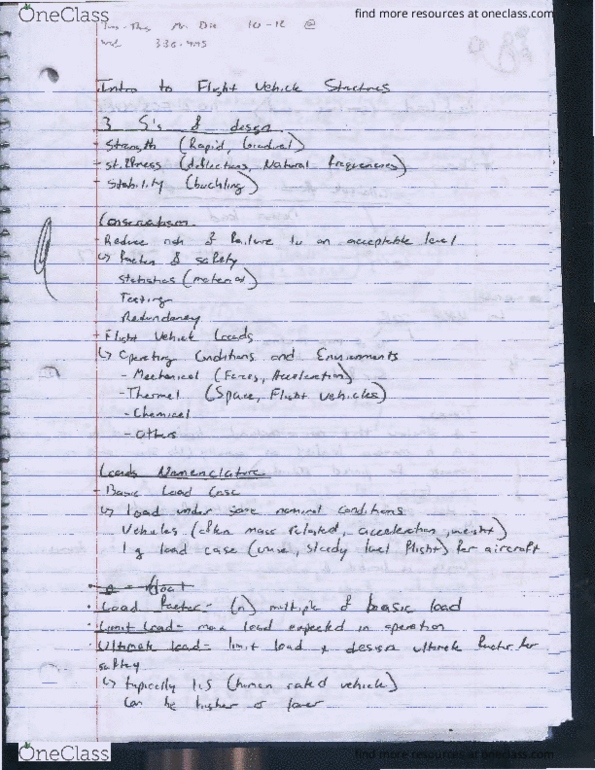 OneClass
find more resources at oneclass.com
10-12 @
Intro to Flight Vehicle Structures
3 S's of design
- Strength (Rapid, Gradual)
- stiffness (deflections, Natural frequencies)
- Stability (buckling)
Conservatism
- Reduce risk of failure to an acceptable level
↳ Factor of safety
statistics (material)
Testing
Redundancy
- Flight Vehicle Loads
↳ Operating Conditions and Environments
- Mechanical (Forces, Acceleration)
- Thermal (Space, Flight vehicles)
- Chemical
- Others
Loads Nomenclature
- Basic Load Case
↳ load under some nominal conditions
Vehicles (often mass related, acceleration, weight)
1 g load case (steady level flight) for aircraft
• Load Factor - (n) multiple of basic load
• Limit Load - max load expected in operation
• Ultimate load - limit load x design ultimate factor for
saftey
↳ typically 1.5 (human rated vehicle)
Can be higher or lower
OneClass
find more resources at oneclass.com